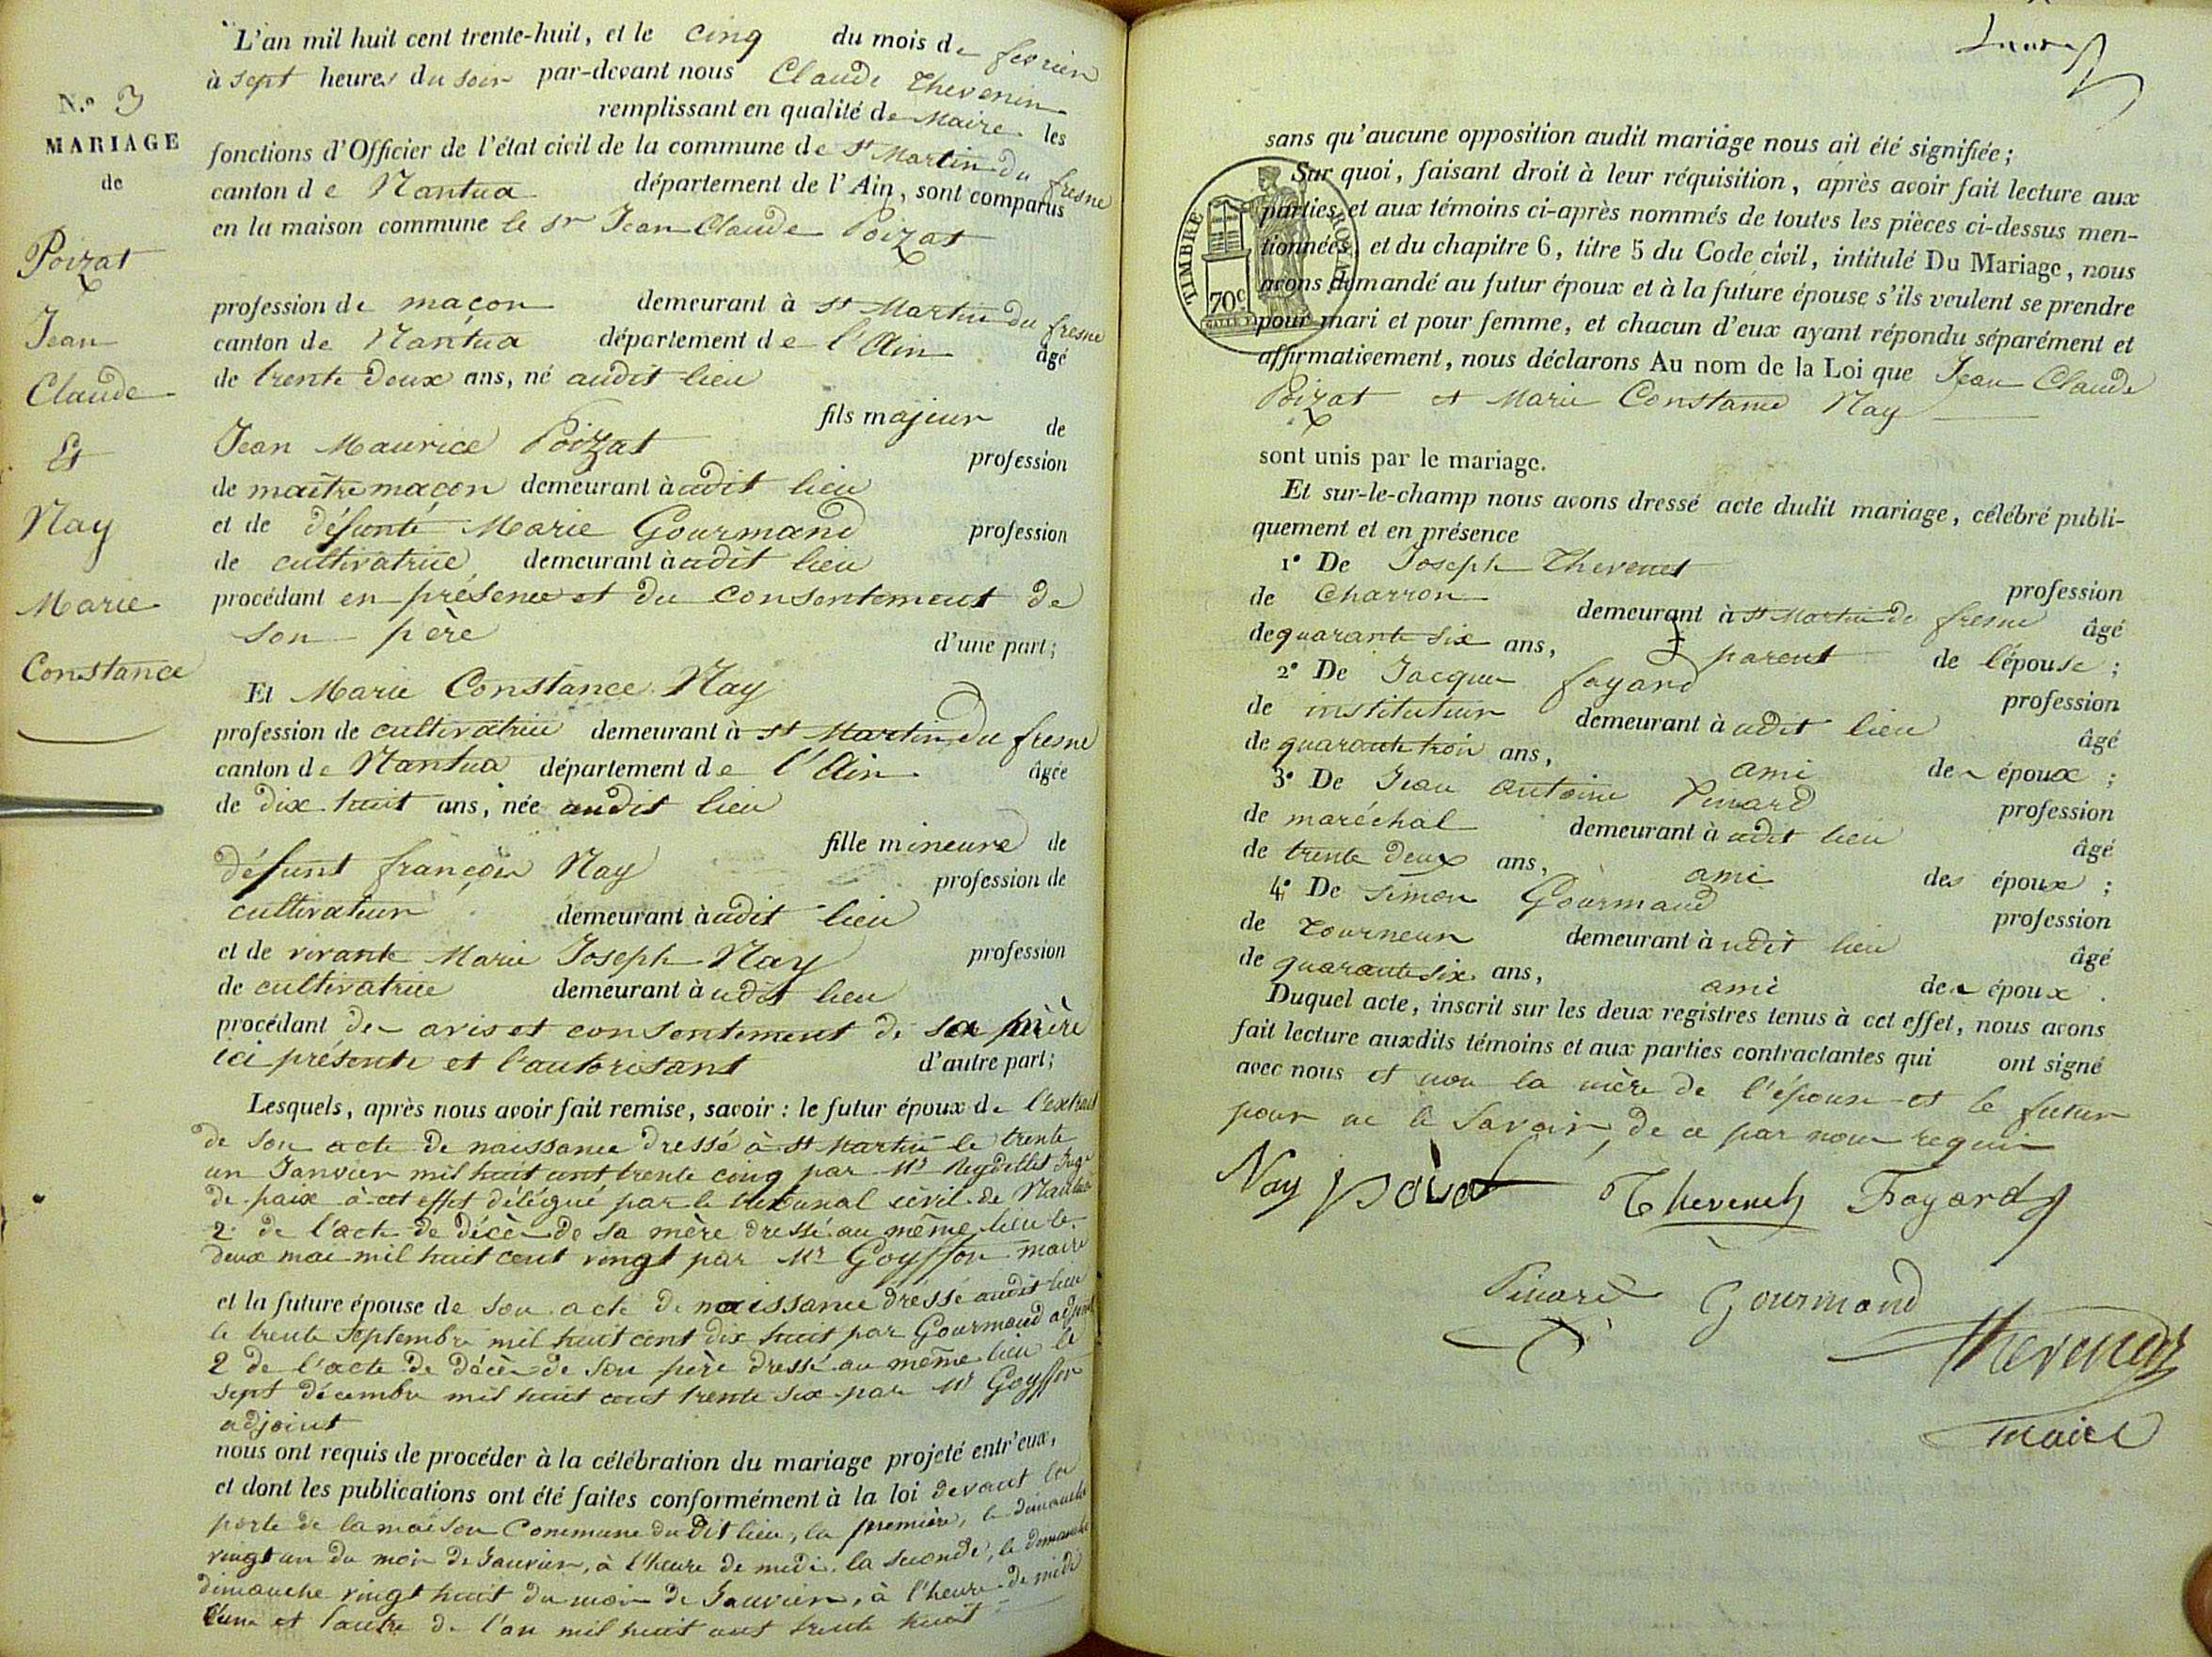 L'an mil huit cent trente-huit, et le cinq du mois de fevrier
à sept heures du soir par-devant nous Claude Thevenin
remplissant en qualité de Maire les
fonctions d'Officier de l'état civil de la commune de St Martin du fresne
canton de Nantua département de l'Ain, sont comparus
en la maison commune le sr Jean Claude Poizat
N.º 3
MARIAGE
de
Poizat
Jean
Claude
Et
Nay
Marie
Constance
profession de maçon demeurant à St Martin du fresne
canton de Nantua département de l'Ain âgé
de trente deux ans, né audit lieu
fils majeur de
Jean Maurice Poizat profession
de maître maçon demeurant à udit lieu
et de défunte Marie Gourmand profession
de cultivatrice demeurant à udit lieu
procédant en présence et du consentement de
son père d'une part;
Et Marie Constance Nay
profession de cultivatrice demeurant à St Martin du fresne
canton de Nantua département de l'Ain âgée
de dix huit ans, née audit lieu
fille mineure de
défunt françois Nay profession de
cultivateur demeurant à udit lieu
et de vivante Marie Joseph Nay profession
de cultivatrice demeurant à udit lieu
procédant de avis et consentement de sa mère
ici présente et l'autorisant d'autre part;
Lesquels, après nous avoir fait remise, savoir : le futur époux de l'extrait
de son acte de naissance dressé à St Martin le trente
un Janvier mil huit cent trente cinq par Mr Juge
de paix à cet effet délégué par le tribunal civil de Nantua
2º de l'acte de décès de sa mère dressé au même lieu le
deux mai mil huit cent vingt par Mr Goyffon maire
et la future épouse de son acte de naissance dressé audit lieu
le trente Septembre mil huit cent dix huit par Gourmand adjoint
2 de l'acte de décès de son père dressé au même lieu le
sept décembre mil huit cent trente six par Mr Goyffon
adjoint
nous ont requis de procéder à la célébration du mariage projeté entr'eux,
et dont les publications ont été faites conformément à la loi devant la
porte de la maison Commune du dit lieu, la première, le dimanche
vingt un du mois de Janvier, à l'heure de midi, la seconde, le dimanche
dimanche vingt huit du mois de Janvier, à l'heure de midi
l'une et l'autre de l'an mil huit cent trente huit
sans qu'aucune opposition audit mariage nous ait été signifiée;
Sur quoi, faisant droit à leur réquisition, après avoir fait lecture aux
parties et aux témoins ci-après nommés de toutes les pièces ci-dessus men-
tionnées, et du chapitre 6, titre 5 du Code civil, intitulé Du Mariage, nous
avons demandé au futur époux et à la future épouse s'ils veulent se prendre
pour mari et pour femme, et chacun d'eux ayant répondu séparément et
affirmativement, nous déclarons Au nom de la Loi que Jean Claude
Poizat et Marie Constance Nay
TIMBRE ROYAL
70c
sont unis par le mariage.
Et sur-le-champ nous avons dressé acte dudit mariage, célébré publi-
quement et en présence
1º De Joseph Thevenet profession
de Charron demeurant à St Martin du fresne âgé
de quarante six ans, parent de l'épouse;
2º De Jacques fayard profession
de instituteur demeurant à udit lieu âgé
de quarante trois ans, ami des époux;
3º De Jean Antoine Pinard profession
de maréchal demeurant à udit lieu âgé
de trente deux ans, ami des époux;
4º De Simon Gourmand profession
de tourneur demeurant à udit lieu âgé
de quarante six ans, ami des époux.
Duquel acte, inscrit sur les deux registres tenus à cet effet, nous avons
fait lecture auxdits témoins et aux parties contractantes qui ont signé
avec nous et non la mère de l'épouse et le futur
pour ne le Savoir, de ce par nous requis
Nay Thevenet Fayard
Pinard Gourmand
Thevenin
maire